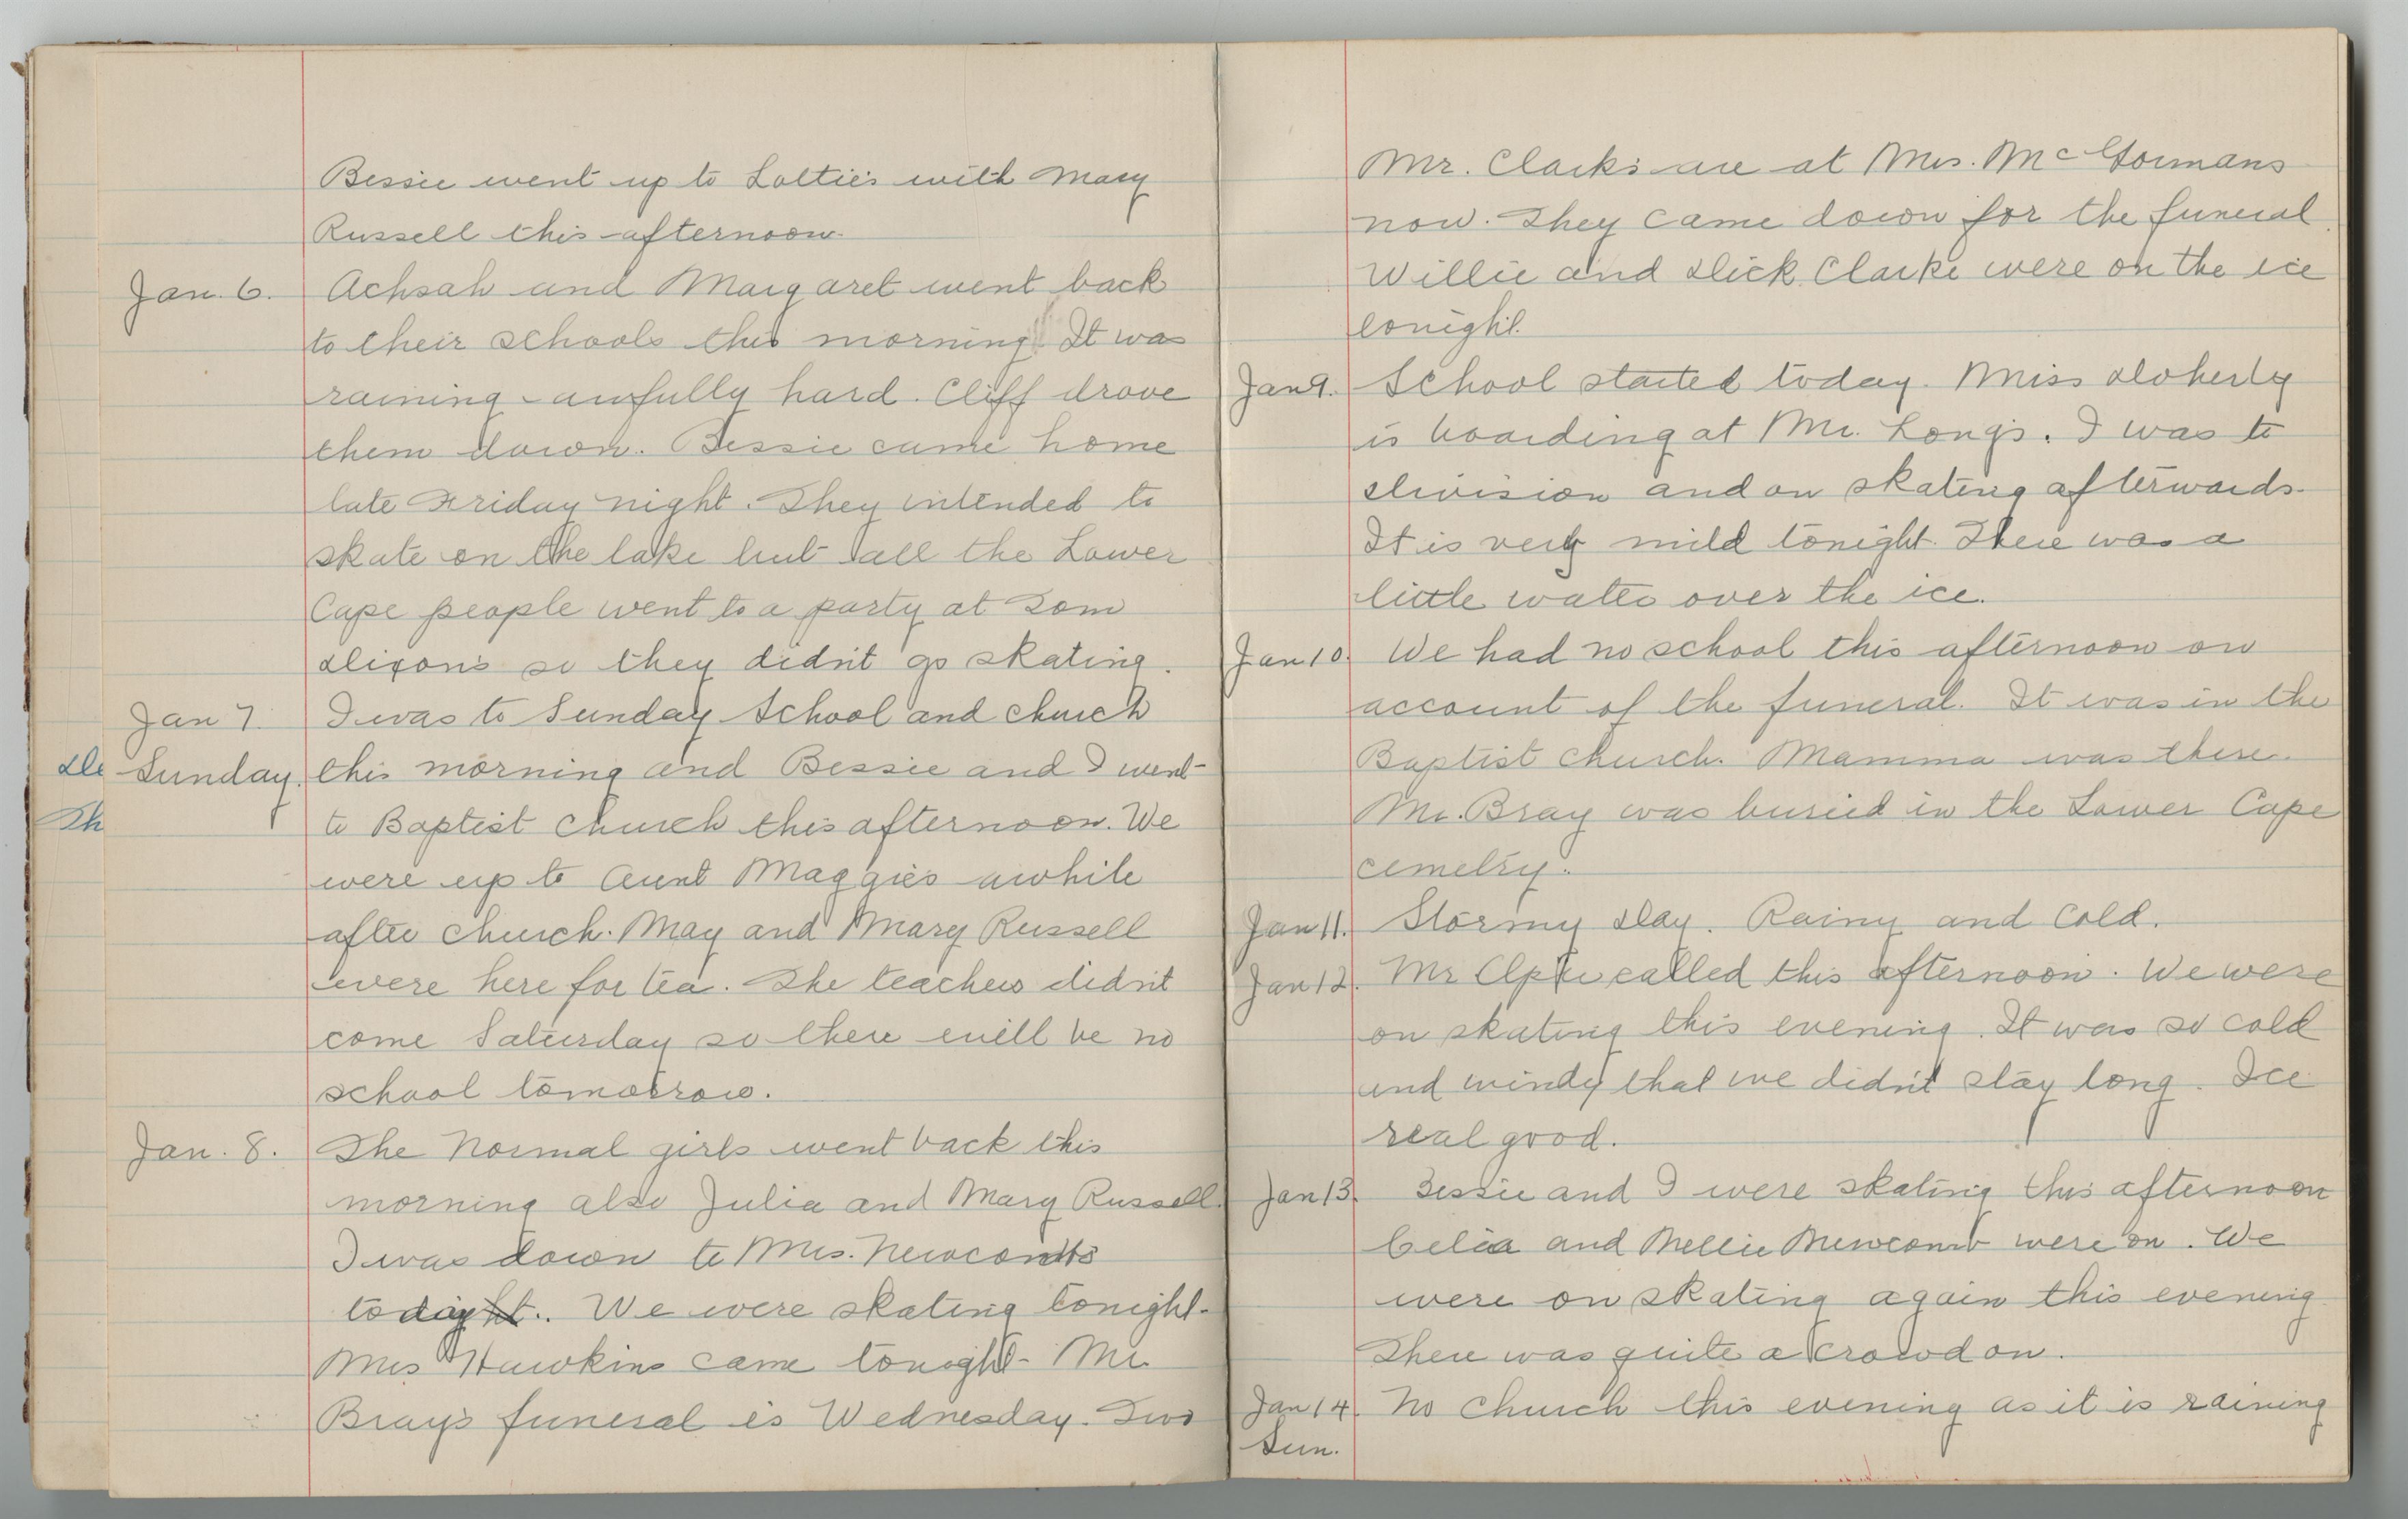 Bessie went up to Lottie's with Mary
Russell this afternoon.
Jan. 6. Achsah and Margaret went back
to their schools this morning. It was
raining awfully hard. Cliff drove
them down. Bessie came home
late Friday night. They intended to
skate on the lake but all the Lower
Cape people went to a party at Tom
Dixon's so they didn't go skating.
Jan 7. I was to Sunday School and church
Sunday. this morning and Bessie and I went
to Baptist Church this afternoon. We
were up to Aunt Maggie's awhile
after church. May and Mary Russell
were here for tea. The teachers didn't
come Saturday so there will be no
school tomorrow.
Jan. 8. The Normal girls went back this
morning also Julia and Mary Russell.
I was down to Mrs. Newcomb's
today. We were skating tonight.
Mrs Hawkins came tonight. Mr.
Bray's funeral is Wednesday. Two
Mr. Clarks are at Mrs. McGormans
now. They came down for the funeral.
Willie and Dick Clarke were on the ice
tonight.
Jan 9. School started today. Miss Doherty
is boarding at Mr. Long's. I was to
Division and on skating afterwards.
It is very mild tonight. There was a
little water over the ice.
Jan 10. We had no school this afternoon on
account of the funeral. It was in the
Baptist church. Mamma was there.
Mr. Bray was buried in the Lower Cape
cemetry.
Jan 11. Stormy day. Rainy and Cold.
Jan 12. Mr called this afternoon. We were
on skating this evening. It was so cold
and windy that we didn't stay long. Ice
real good.
Jan 13. Bessie and I were skating this afternoon
Celia and Nellie Newcomb were on. We
were on skating again this evening
There was quite a crowd on.
Jan 14. No Church this evening as it is raining
Sun.